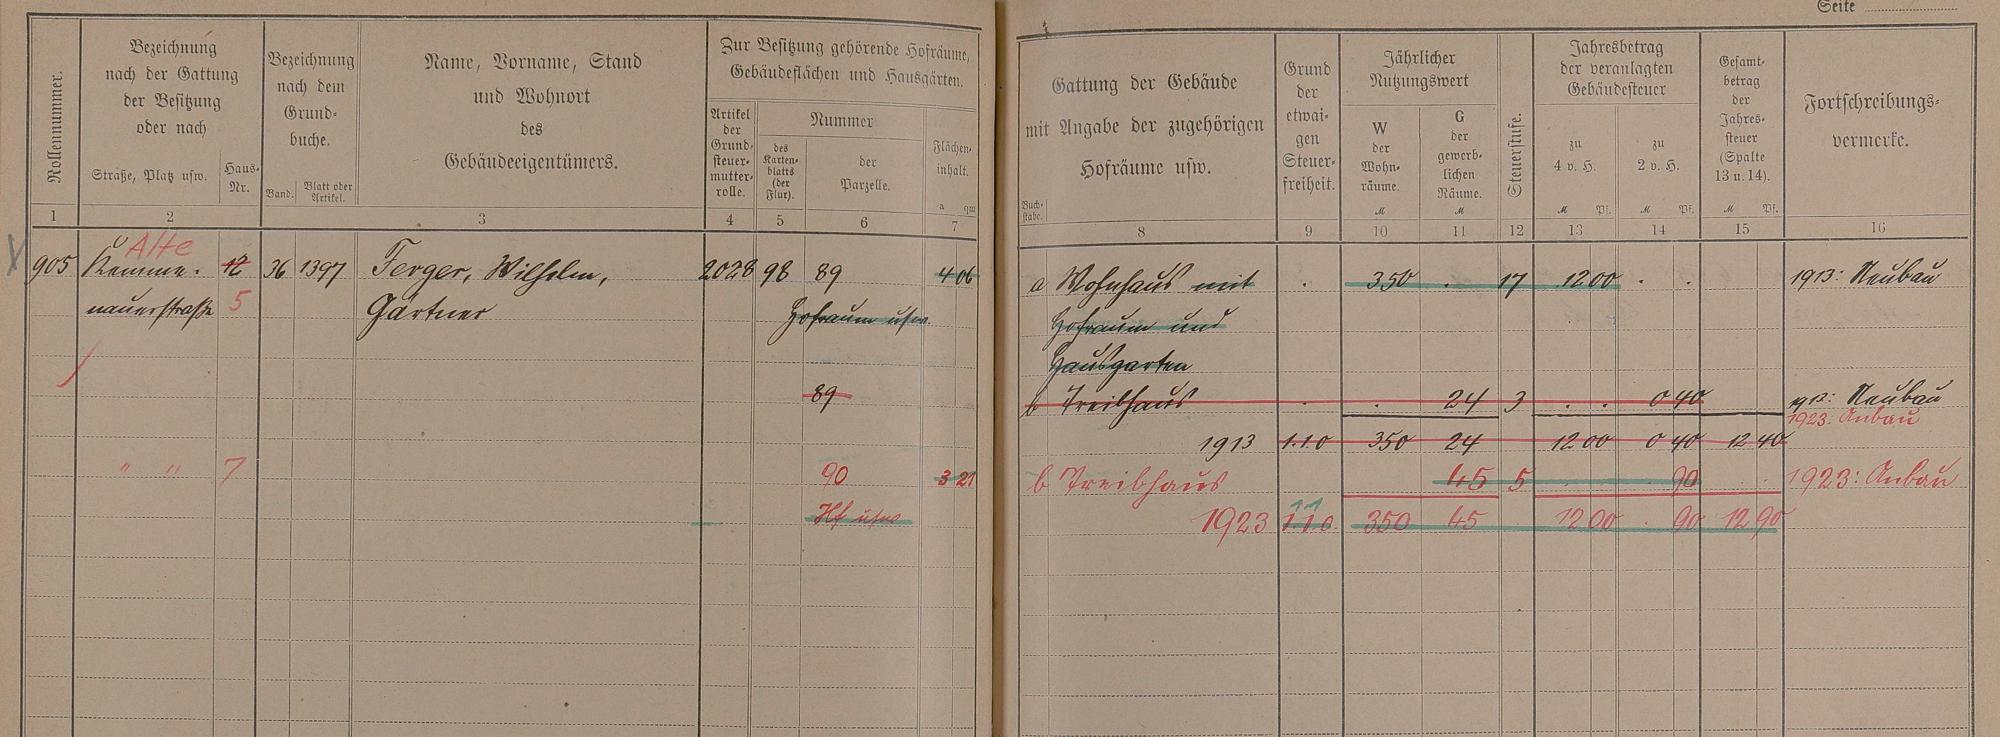 Seite
Rollennummer.
Bezeichnung
nach der Gattung
der Besitzung
oder nach
Straße, Platz usw.
Haus-
Nr.
Bezeichnung
nach dem
Grund-
buche.
Band.
Blatt oder
Artikel.
Name, Vorname, Stand
und Wohnort
des
Gebäudeeigentümers.
Zur Besitzung gehörende Hofräume,
Gebäudeflächen und Hausgärten.
Artikel
der
Grund-
steuer-
mutter-
rolle.
Nummer
des
Karten-
blatts
(der
Flur).
der
Parzelle.
Flächen-
inhalt.
a qm
Gattung der Gebäude
mit Angabe der zugehörigen
Hofräume usw.
Buch-
stabe.
Grund
der
etwai-
gen
Steuer-
freiheit.
Jährlicher
Nutzungswert
W
der
Wohn-
räume.
M
G
der
gewerb-
lichen
Räume.
M
Steuerstufe.
Jahresbetrag
der veranlagten
Gebäudesteuer
zu
4 v. H.
M Pf.
zu
2 v. H.
M Pf.
Gesamt-
betrag
der
Jahres-
steuer
(Spalte
13 u. 14).
M Pf.
Fortschreibungs-
vermerke.
1 2 3 4 5 6 7 8 9 10 11 12 13 14 15 16
Alte
905 Kemme- 12 36 1397 Ferger, Wilhelm, 2028 98 89 4 06 a Wohnhaus mit . 350 . 17 12 00 . . 1913: Neubau
nauerstraße 5 Gärtner Hofraum usw. Hofraum und
Hausgarten
89 b Treibhaus . . 24 3 . . 0 40 1913: Neubau
1923: Anbau
1913 1.1.0 350 24 12 00 0 40 12 40
" " 7 90 3 21 b Treibhaus 45 5 . . 90 1923: Anbau
Hf usw 1923 1.1.0. 350 45 12 00 . 90 12 90